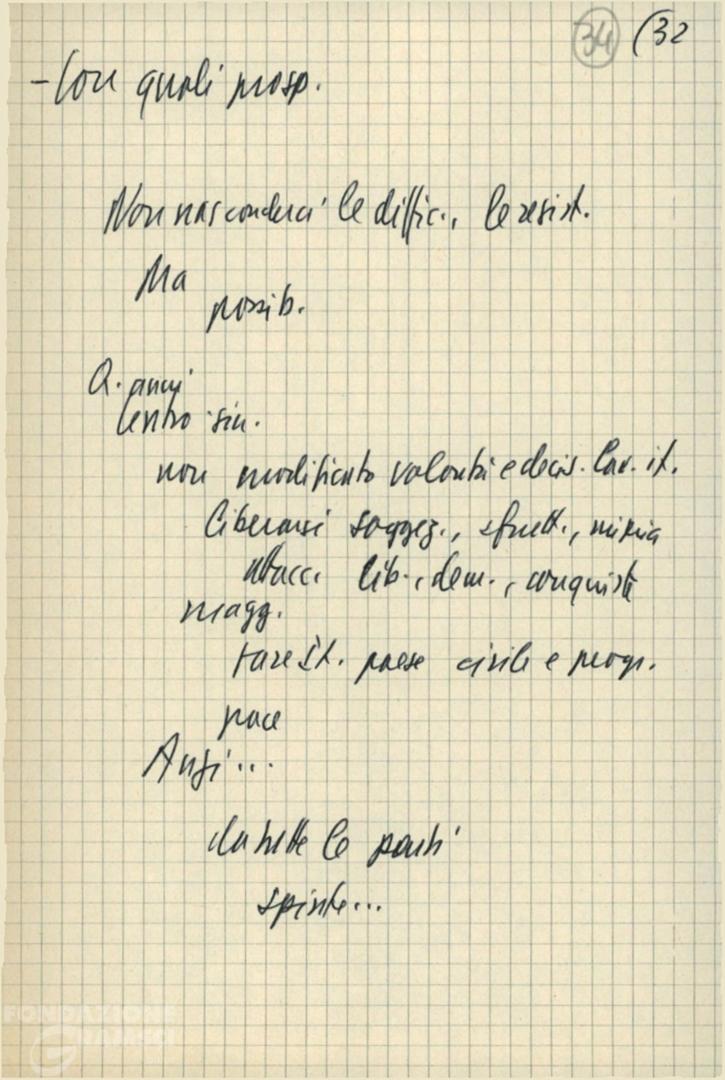 34 (32
- Con quali prosp.
Non nasconderci le diffic., le resist.
Ma
possib.
Q. anni
Centro sin.
non modificato volontà e decis. lav. it.
liberarsi soggez., sfrutt., miseria
attacc. lib., dem., conquiste
magg.
fare It. paese civile e progr.
pace
Anzi...
da tutte le parti
spinte...
FONDAZIONE
GRAMSCI